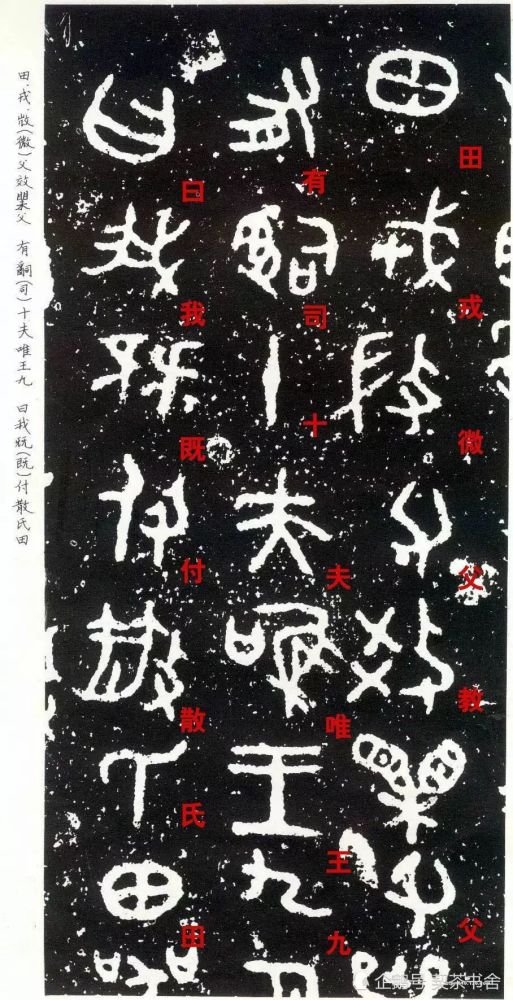 田戎微父教父
有司十夫唯王九
曰我既付散氏田
田、戎、(微)父效父 有嗣(司)十夫唯王九 曰我(既)付散氏田
企鹅号 茶书舍